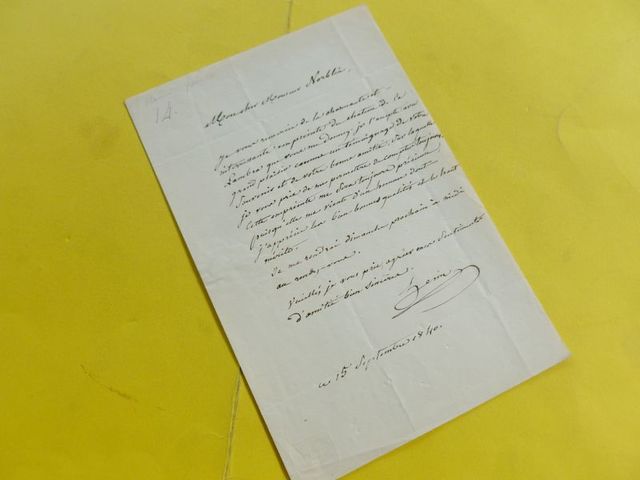 14.
Mon cher Monsieur Norblin,
Je vous remercie de la charmante et
intéressante empreinte du chaton de la
que vous me donnez, je l'accepte avec
grand plaisir comme un témoignage de votre
Souvenir et de votre bonne amitié, sur laquelle
je vous prie de me permettre de compter toujours,
Cette empreinte me sera toujours précieuse
puisqu'elle me vient d'un homme dont
j'apprécie les bien bonnes qualités et le haut
mérite.
Je me rendrai dimanche prochain à midi
au rendez-vous.
Veuillez je vous prie, agréer mes Sentiments
d'amitié bien sincère.
Heim
ce 15 Septembre 1840.